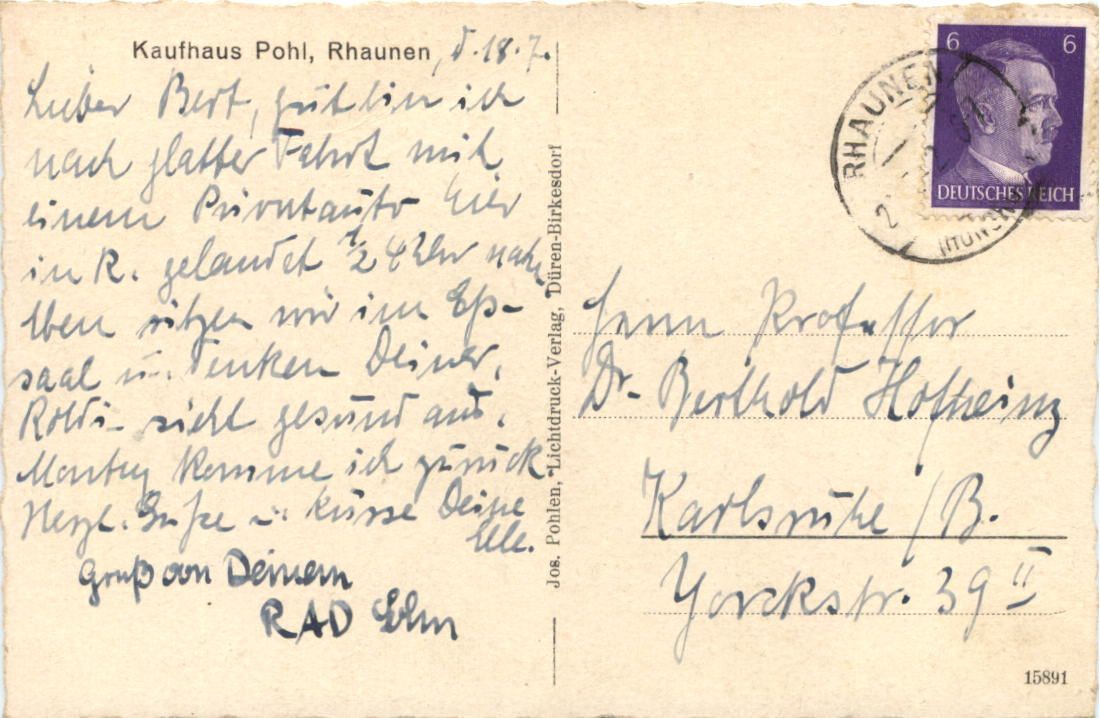 Kaufhaus Pohl, Rhaunen, d. 18.7.
Lieber Bert, gut bin ich
nach glatter Fahrt mit
einem Privatauto hier
in R. gelandet 1/2 4 Uhr nach
Eben sitzen wir im Eß-
saal u. denken Deiner.
Roldi sieht gesund aus.
Montag komme ich zurück.
Herzl. Grüße u. Küsse Deine
Elle.
Gruß von Deinem
RAD
Jos. Pohlen, Lichtdruck-Verlag, Düren-Birkesdorf
6 6
DEUTSCHES REICH
RHAUNEN
Herrn Professor
Dr. Berthold Hofheinz
Karlsruhe / B.
Yorckstr. 39 II
15891